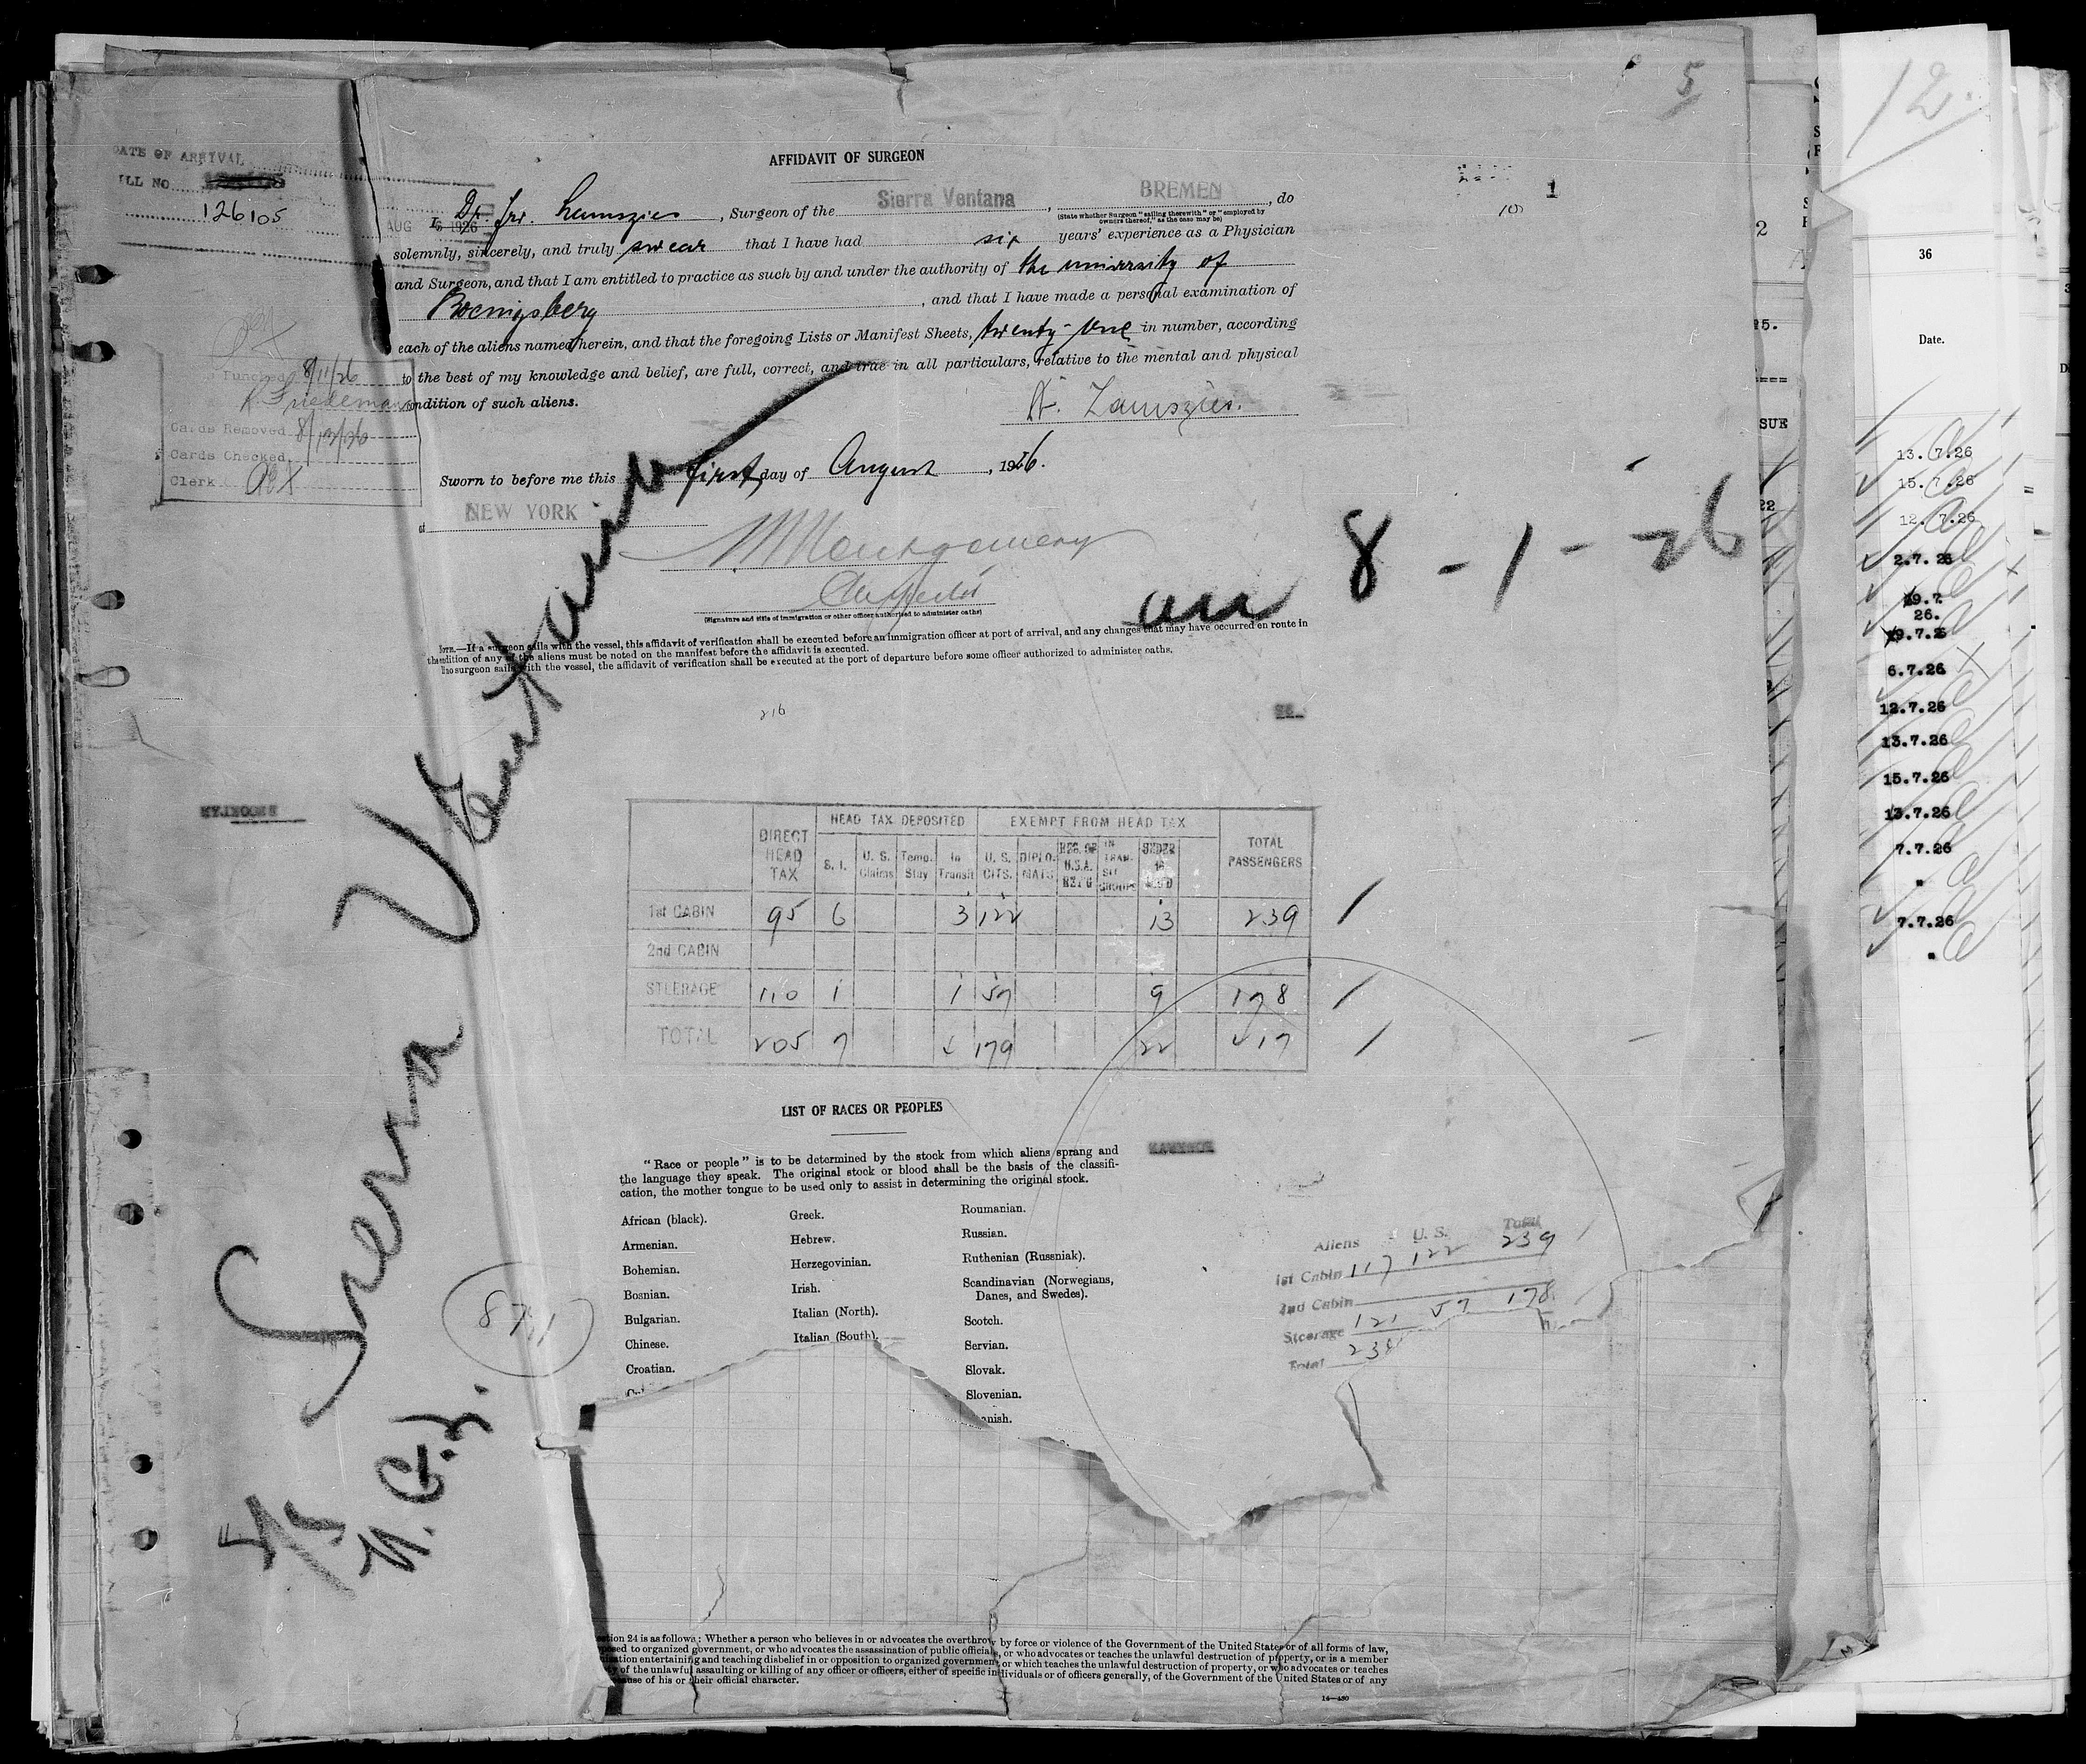 5
12.
DATE OF ARRIVAL
126105
AUG 1926
AFFIDAVIT OF SURGEON
1
Dr. , Surgeon of the Sierra Ventana , BREMEN , do
(State whether Surgeon "sailing therewith" or "employed by
owners thereof," as the case may be)
solemnly, sincerely, and truly swear that I have had six years' experience as a Physician
and Surgeon, and that I am entitled to practice as such by and under the authority of the university of
Koenigsberg , and that I have made a personal examination of
each of the aliens named herein, and that the foregoing Lists or Manifest Sheets, twenty-one in number, according
to the best of my knowledge and belief, are full, correct, and true in all particulars, relative to the mental and physical
condition of such aliens.
Punched 8/11/26
K. Friedeman
Cards Removed 8/12/26
Cards Checked
Clerk
Sworn to before me this first day of August , 1926.
at NEW YORK
Montgomery
(Signature and title of immigration or other officer authorized to administer oaths)
8-1-26
NOTE.—If a surgeon sails with the vessel, this affidavit of verification shall be executed before an immigration officer at port of arrival, and any changes that may have occurred en route in
the condition of any of the aliens must be noted on the manifest before the affidavit is executed.
If no surgeon sails with the vessel, the affidavit of verification shall be executed at the port of departure before some officer authorized to administer oaths.
216
Sierra Ventana
N.G.L.
DIRECT HEAD TAX
HEAD TAX DEPOSITED
EXEMPT FROM HEAD TAX
TOTAL PASSENGERS
S. I. U. S. Claims Temp. Stay In Transit U. S. CITS. DIPLO-MATS REG. OF U.S.A. RET'G IN TRAN-SIT GROUPS UNDER 16
1st CABIN 95 6 3 122 13 239
2nd CABIN
STEERAGE 110 1 1 57 9 178
TOTAL 205 7 4 179 22 417
LIST OF RACES OR PEOPLES
"Race or people" is to be determined by the stock from which aliens sprang and
the language they speak. The original stock or blood shall be the basis of the classifi-
cation, the mother tongue to be used only to assist in determining the original stock.
African (black).
Armenian.
Bohemian.
Bosnian.
Bulgarian.
Chinese.
Croatian.
Greek.
Hebrew.
Herzegovinian.
Irish.
Italian (North).
Italian (South).
Roumanian.
Russian.
Ruthenian (Russniak).
Scandinavian (Norwegians,
Danes, and Swedes).
Scotch.
Servian.
Slovak.
Slovenian.
anish.
Aliens U. S. Total
1st Cabin 117 122 239
2nd Cabin
Steerage 121 57 178
Total 238
ction 24 is as follows: Whether a person who believes in or advocates the overthrow by force or violence of the Government of the United States or of all forms of law,
posed to organized government, or who advocates the assassination of public officials, or who advocates or teaches the unlawful destruction of property, or is a member
nization entertaining and teaching disbelief in or opposition to organized government, or which teaches the unlawful destruction of property, or who advocates or teaches
ty of the unlawful assaulting or killing of any officer or officers, either of specific individuals or of officers generally, of the Government of the United States or of any
ause of his or their official character.
14—430
36
Date.
13.7.26
15.7.26
12.7.26
2.7.26
9.7.
26.
9.7.26
6.7.26
12.7.26
13.7.26
15.7.26
13.7.26
7.7.26
"
7.7.26
"